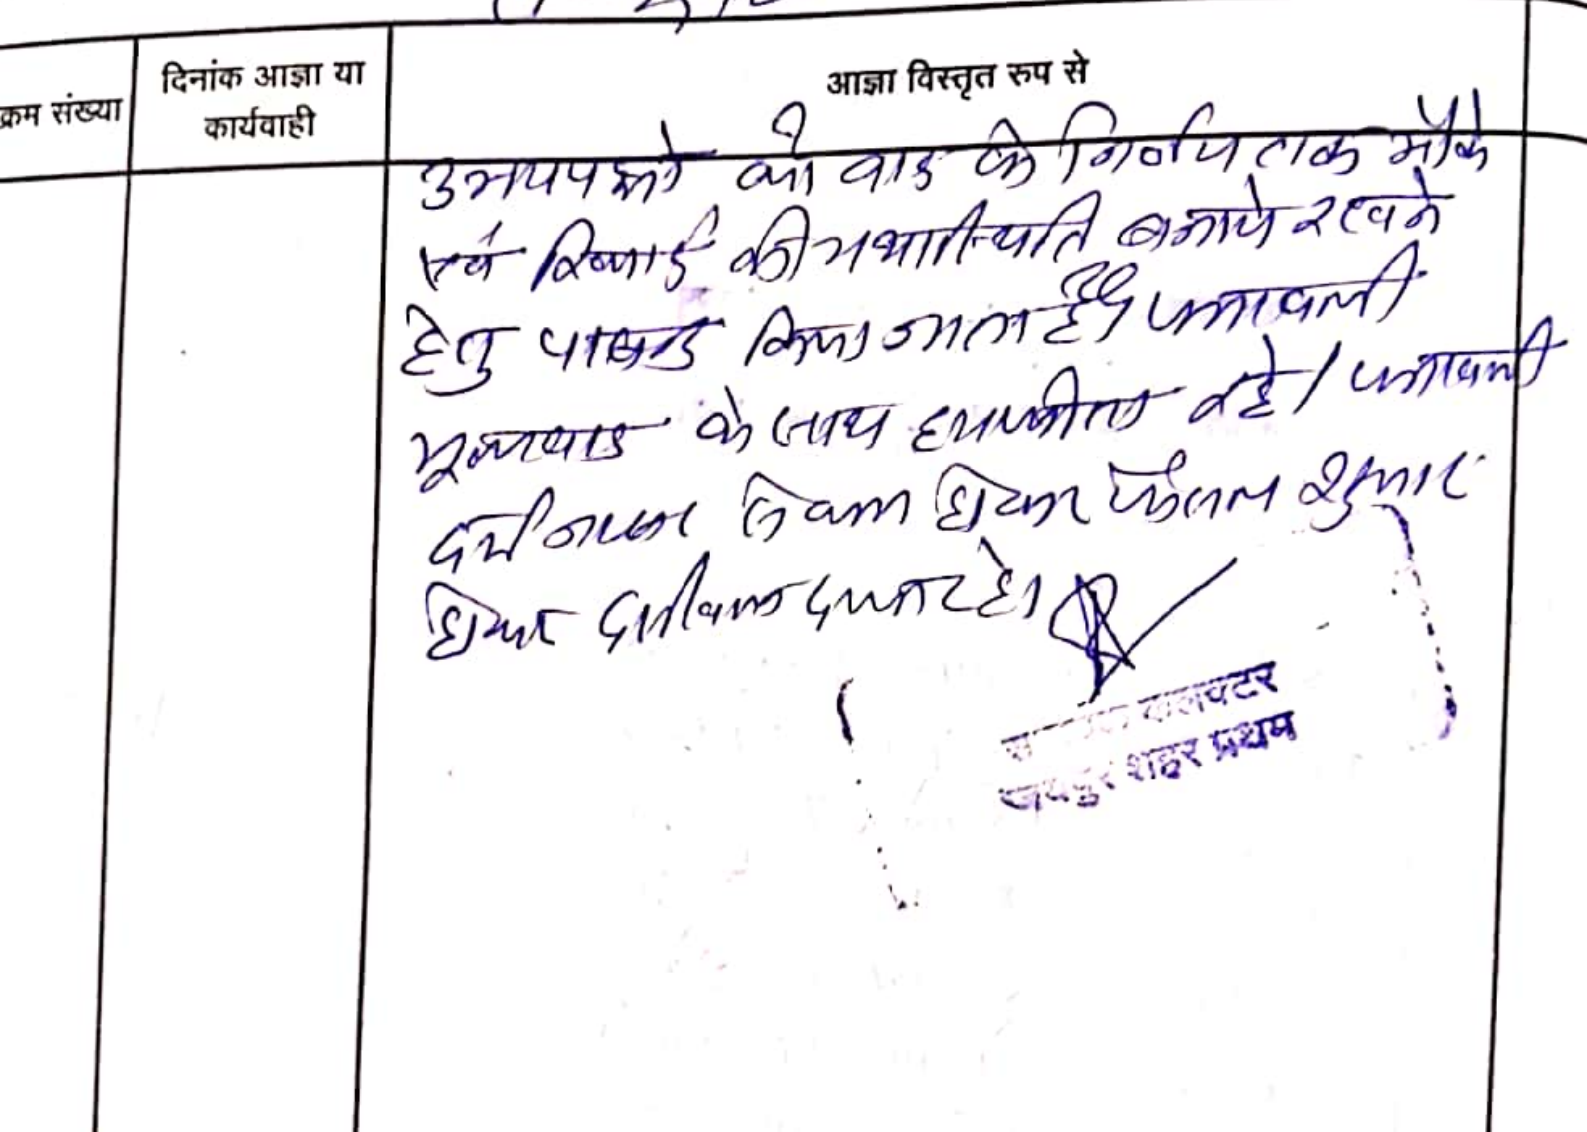 क्रम संख्या
दिनांक आज्ञा या
कार्यवाही
आज्ञा विस्तृत रुप से
उभयपक्षो को वाद के निर्णय तक मौके
एवं रिकार्ड की यथास्थिति बनाये रखने
हेतु पाबन्द किया जाता है। पत्रावली
मूलवाद के साथ हमफीता रहे। पत्रावली
दर्ज नम्बर से कम होकर फैसल शुमार
होकर दाखिल दफ्तर हो।
कलक्टर
जयपुर शहर प्रथम